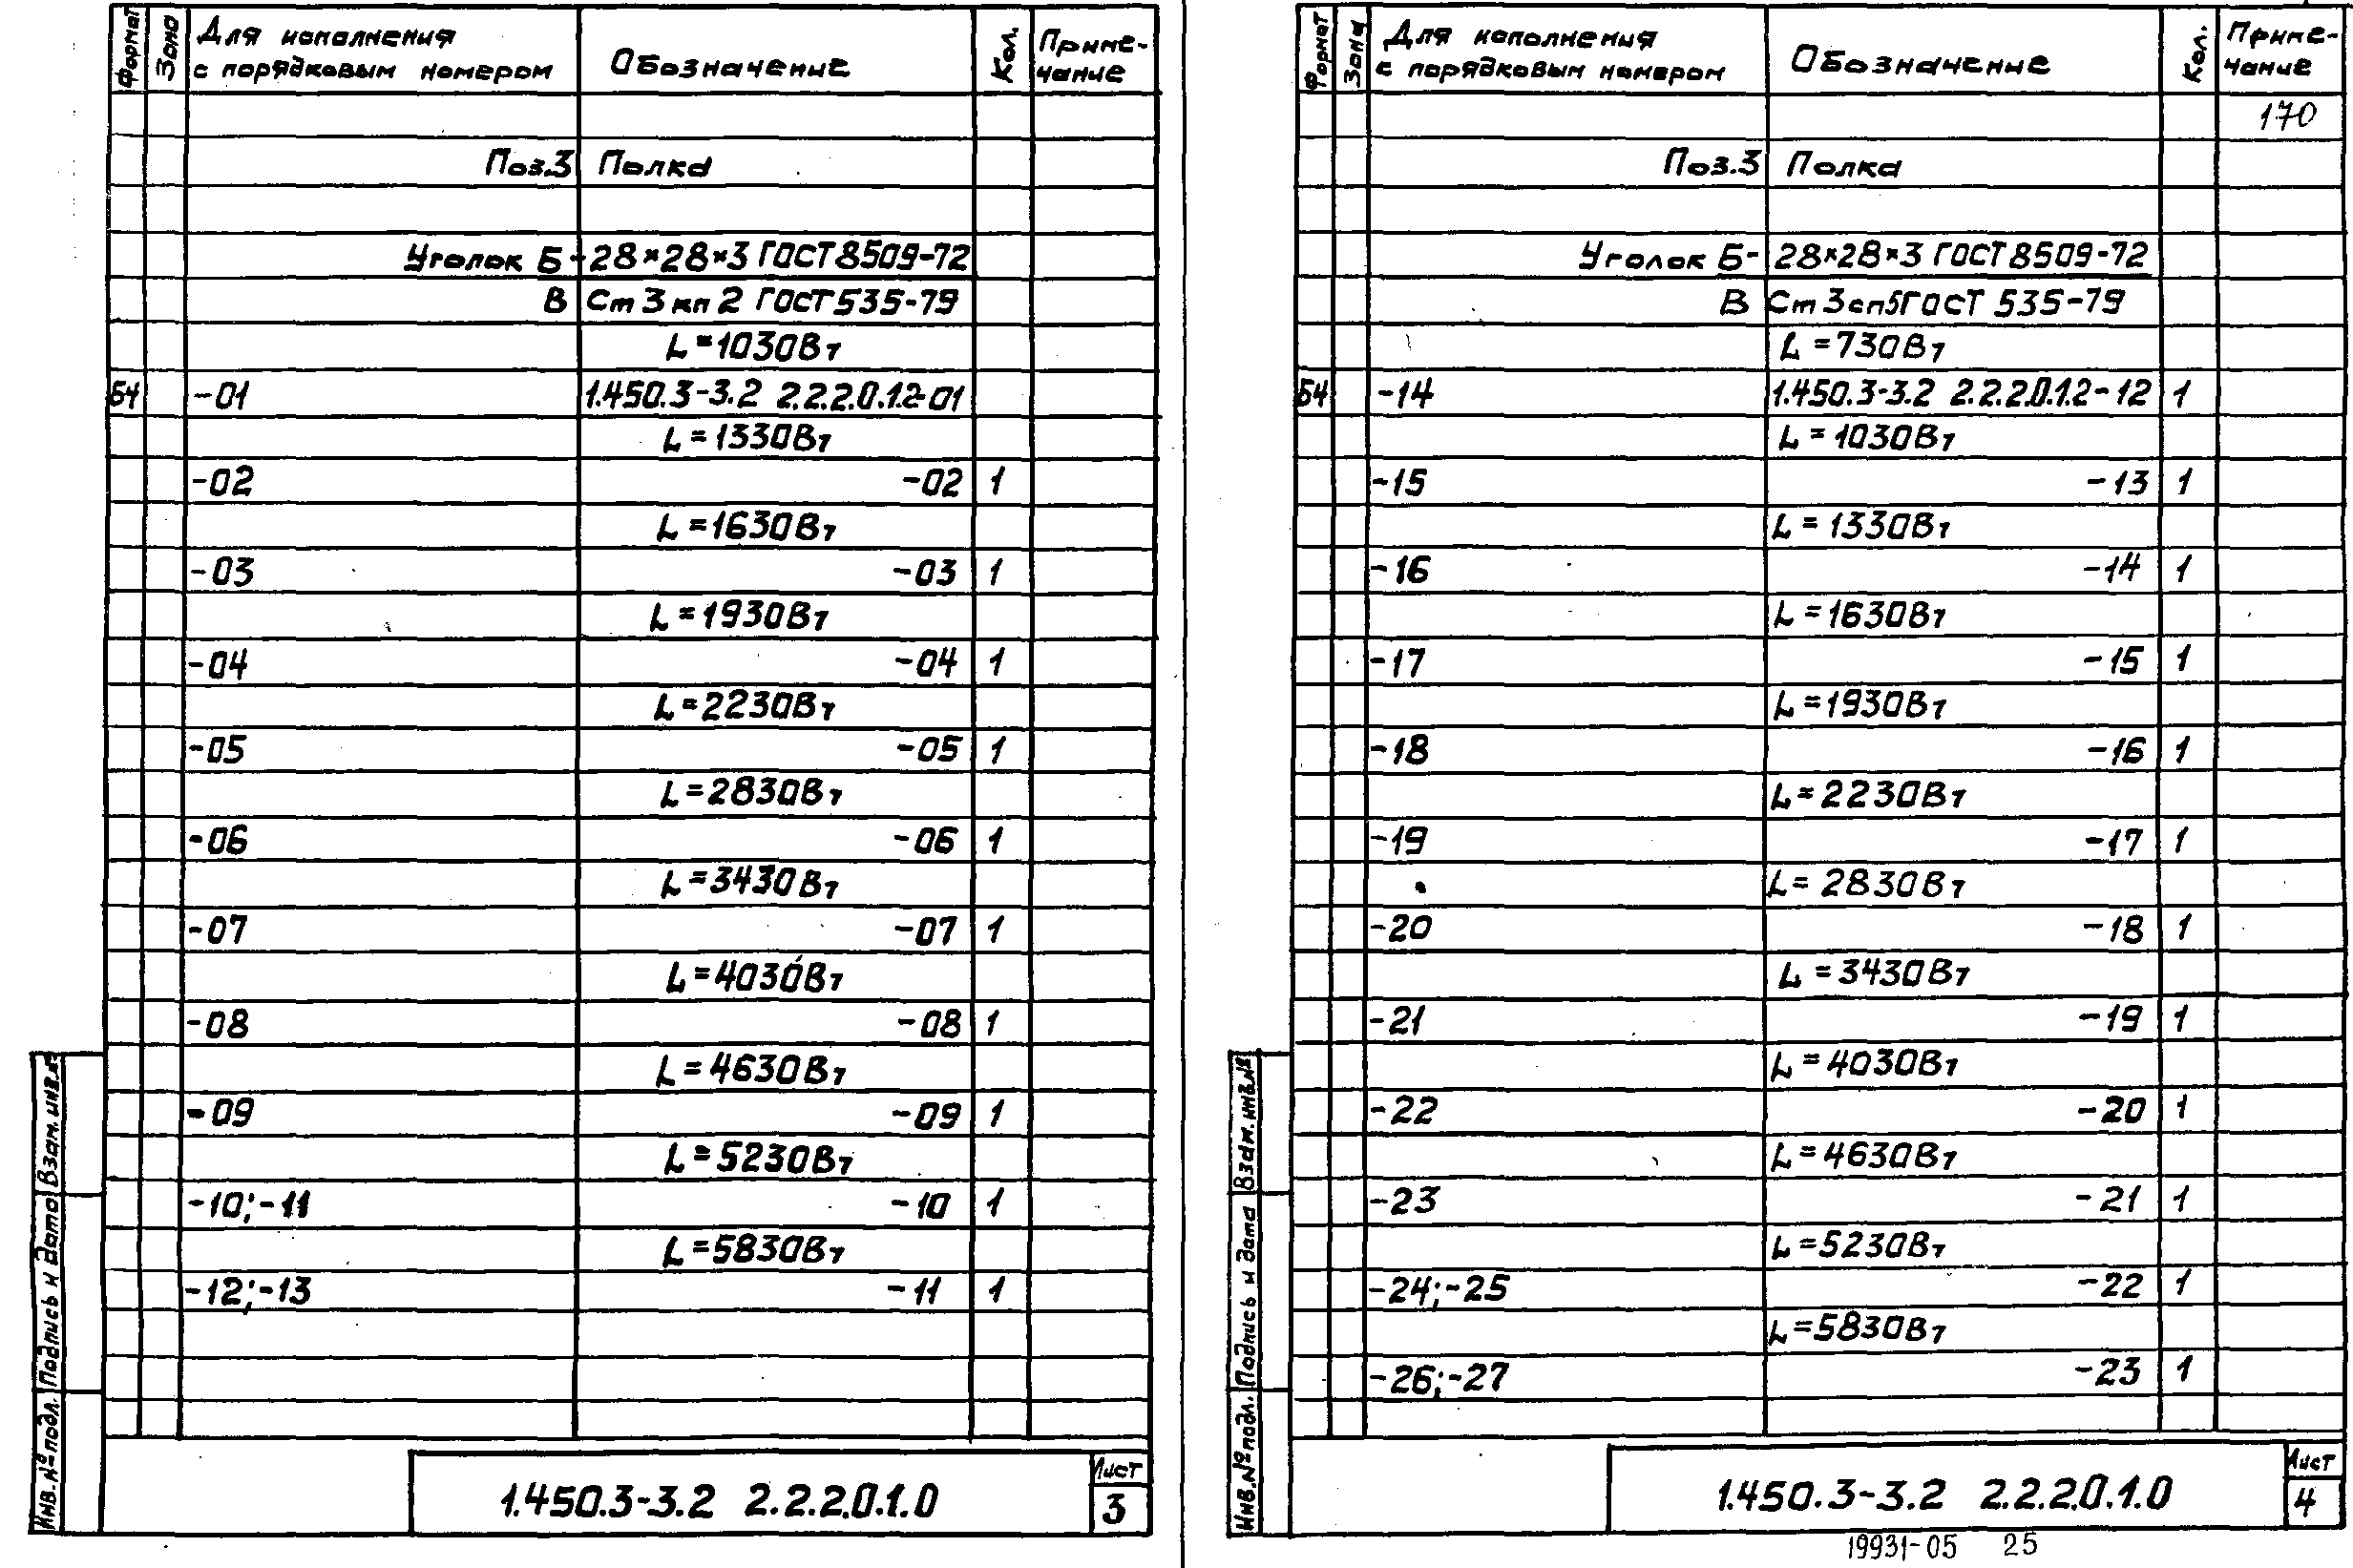 Формат Зона Для исполнения с порядковым номером Обозначение Кол. Приме-чание
Поз.3 Полка
Уголок Б-28×28×3 ГОСТ 8509-72
В Ст 3 кп 2 ГОСТ 535-79
L=1030Вт
Б4 -01 1.450.3-3.2 2.2.2.0.1.2-01
L=1330Вт
-02 -02 1
L=1630Вт
-03 -03 1
L=1930Вт
-04 -04 1
L=2230Вт
-05 -05 1
L=2830Вт
-06 -06 1
L=3430Вт
-07 -07 1
L=4030Вт
-08 -08 1
L=4630Вт
-09 -09 1
L=5230Вт
-10;-11 -10 1
L=5830Вт
-12;-13 -11 1
Инв.№ подл. Подпись и дата Взам.инв.№
1.450.3-3.2 2.2.2.0.1.0
Лист
3
Формат Зона Для исполнения с порядковым номером Обозначение Кол. Приме-чание
170
Поз.3 Полка
Уголок Б-28×28×3 ГОСТ 8509-72
В Ст 3сп5 ГОСТ 535-79
L=730Вт
Б4 -14 1.450.3-3.2 2.2.2.0.1.2-12 1
L=1030Вт
-15 -13 1
L=1330Вт
-16 -14 1
L=1630Вт
-17 -15 1
L=1930Вт
-18 -16 1
L=2230Вт
-19 -17 1
L=2830Вт
-20 -18 1
L=3430Вт
-21 -19 1
L=4030Вт
-22 -20 1
L=4630Вт
-23 -21 1
L=5230Вт
-24;-25 -22 1
L=5830Вт
-26;-27 -23 1
Инв.№ подл. Подпись и дата Взам.инв.№
1.450.3-3.2 2.2.2.0.1.0
Лист
4
19931-05 25